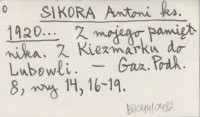 SIKORA Antoni ks.
1920... Z mojego pamięt
nika. Z Kiezmarku do
Lubowli. — Gaz. Podh.
8, nry 14, 16-19.